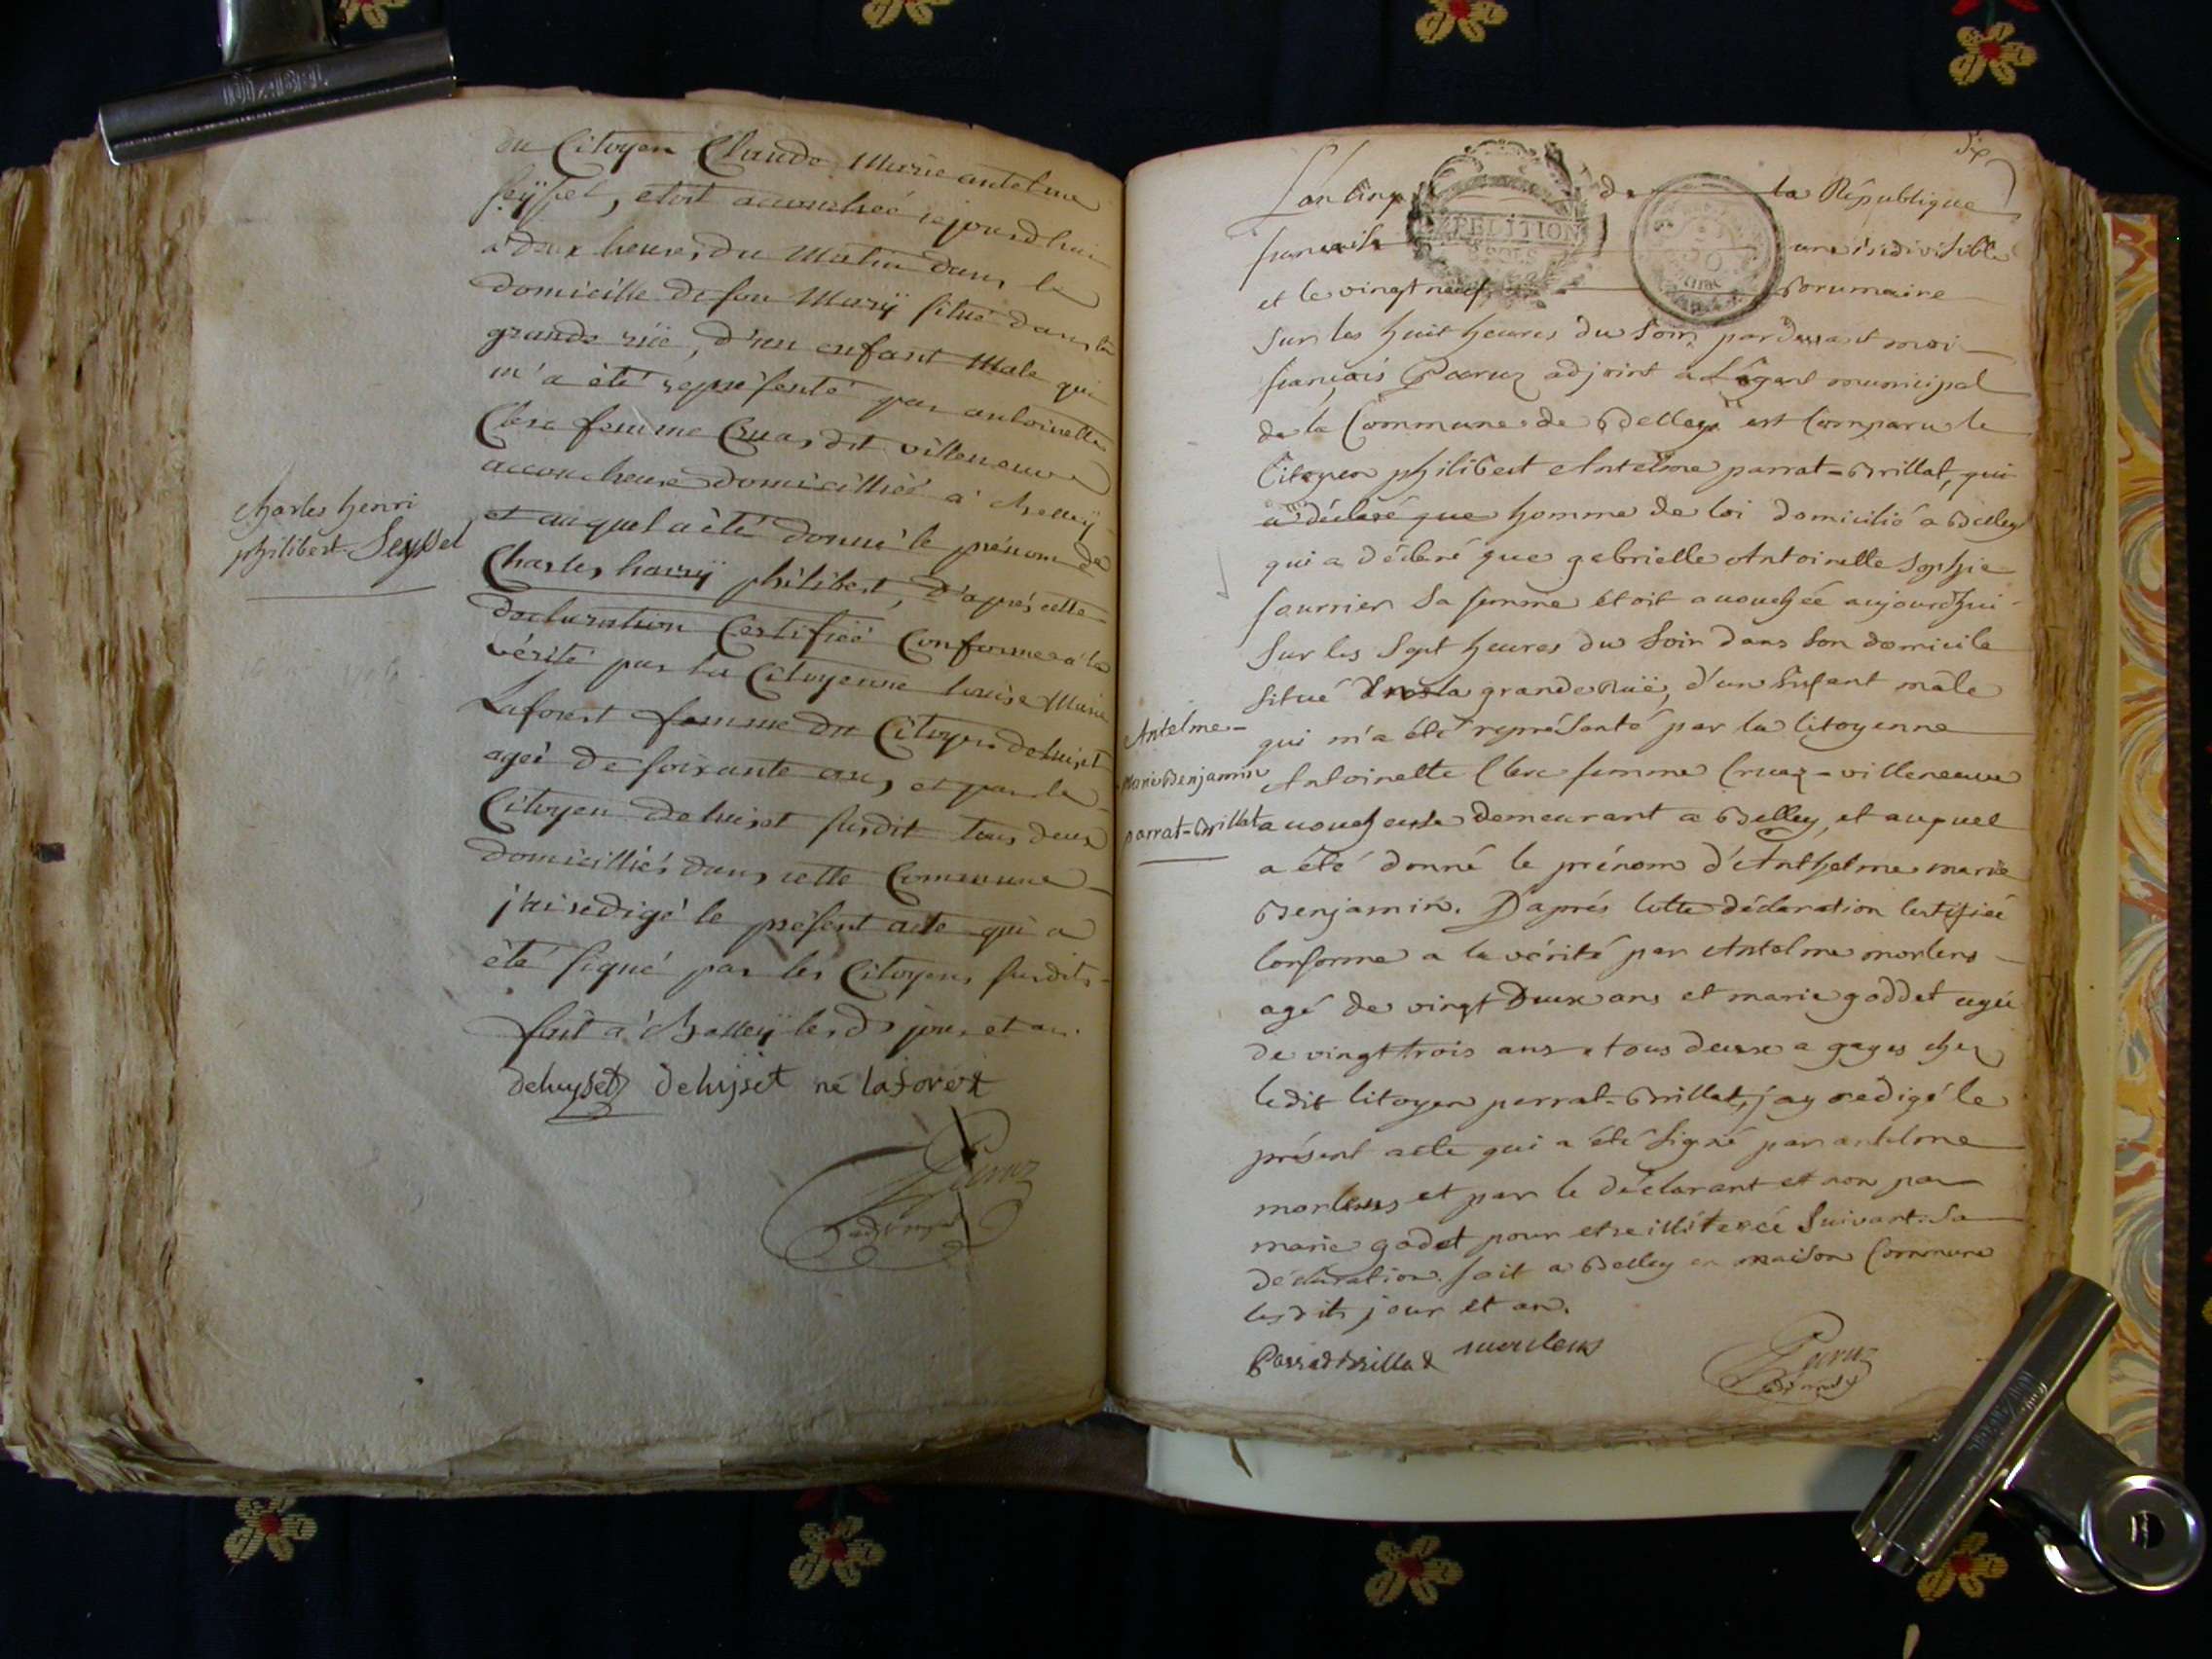 du Citoyen Claude Marie antelme
Seÿssel, etoit accouchée cejourd'hui
a deux heures du Matin dans le
domicille de son Marÿ situé dans la
grande rüe, d'un enfant Male qui
m'a été représenté par antoinette
Clerc femme Cruas dit villeneuve
accoucheuse domicilliée a Belleÿ
et auquel a été donné le prénom de
Charles henrÿ philibert, D'après cette
declaration Certifiée Conforme a la
vérité par la Citoyenne louise Marie
Laforest femme du Citoyen deluiset
agée de soixante ans, et par le
Citoyen deluiset susdit tous deux
domicilliés dans cette Commune
j'ai redigé le présent acte qui a
été signé par les Citoyens susdits
fait a Belleÿ les d jour et an.
deluyset deluyset né laforest
Parux
adjoint
charles henri
philibert Seyssel
six
L'an cinq de la République
francaise une indivisible
et le vingt neuf Brumaire
sur les huit heures du soir pardevant moi
françois Parux adjoint a L'agent municipal
de la Commune de Belley est Comparu le
Citoyen philibert Antelme parrat-Brillat, qui
a déclaré que homme de loi domicilié a Belley
qui a déclaré que gabrielle Antoinette Sophie
fournier sa femme etoit accouchée aujourd'hui
sur les sept heures du soir dans son domicile
situé dans la grande Rüe, d'un Enfant mâle
qui m'a été représenté par la Citoyenne
Antoinette Clerc femme Cruaz-villeneuve
accoucheuse demeurant a Belley, et auquel
a été donné le prénom d'Anthelme marie
Benjamin. D'après Cette déclaration Certifiée
Conforme a la vérité par Antelme morlens
agé de vingt Deux ans et marie goddet agée
de vingt trois ans tous deux a gages chez
ledit Citoyen parrat-Brillat, j'ay redigé le
présent acte qui a été signé par antelme
morlens et par le déclarant et non par
marie godet pour etre illiterée suivant sa
déclaration. fait a Belley en maison Commune
lesdits jour et an.
Parrat Brillat morlens
Parux
adjoint
Antelme
Marie Benjamin
parrat-Brillat
EXPEDITION